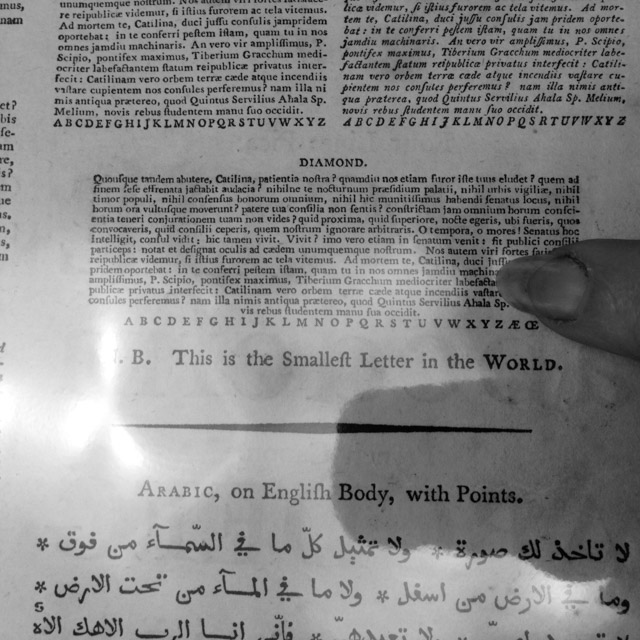 unumquemque nostrum. Nos autem viri fortes
re reipublicæ videmur, si istius furorem ac tela vitemus.
Ad mortem te, Catilina, duci jussu consulis jampridem
oportebat: in te conferri pestem istam, quam tu in nos
omnes jamdiu machinaris. An vero vir amplissimus, P.
Scipio, pontifex maximus, Tiberium Gracchum medi-
ocriter labefactantem statum reipublicæ privatus inter-
fecit: Catilinam vero orbem terræ cæde atque incendiis
vastare cupientem nos consules perferemus? nam illa ni
mis antiqua prætereo, quod Quintus Servilius Ahala Sp.
Melium, novis rebus studentem manu suo occidit.
A B C D E F G H I J K L M N O P Q R S T U V W X Y Z
licæ videmur, si istius furorem ac tela vitemus. Ad mor-
tem te, Catilina, duci jussu consulis jam pridem oporte-
bat: in te conferri pestem istam, quam tu in nos omnes
jamdiu machinaris. An vero vir amplissimus, P. Scipio,
pontifex maximus, Tiberium Gracchum mediocriter labe-
factantem statum reipublicæ privatus interfecit: Catili-
nam vero orbem terræ cæde atque incendiis vastare cu-
pientem nos consules perferemus? nam illa nimis anti-
qua prætereo, quod Quintus Servilius Ahala Sp. Melium,
novis rebus studentem manu suo occidit.
A B C D E F G H I J K L M N O P Q S R T U V W X Y Z
DIAMOND.
Quousque tandem abutere, Catilina, patientia nostra? quamdiu nos etiam furor iste tuus eludet? quem ad
finem sese effrenata jactabit audacia? nihilne te nocturnum præsidium palatii, nihil urbis vigiliæ, nihil
timor populi, nihil consensus bonorum omnium, nihil hic munitissimus habendi senatus locus, nihil
horum ora vultusque moverunt? patere tua consilia non sentis? constrictam jam omnium horum consci-
entia teneri conjurationem tuam non vides? quid proxima, quid superiore, nocte egeris, ubi fueris, quos
convocaveris, quid consilii ceperis, quem nostrum ignorare arbitraris. O tempora, o mores! Senatus hoc
intelligit, consul vidit: hic tamen vivit. Vivit? imo vero etiam in senatum venit: fit publici consilii
particeps: notat et designat oculis ad cædem unumquemque nostrum. Nos autem viri fortes
reipublicæ videmur, si istius furorem ac tela vitemus. Ad mortem te, Catilina, duci
pridem oportebat: in te conferri pestem istam, quam tu in nos omnes jamdiu
amplissimus, P. Scipio, pontifex maximus, Tiberium Gracchum mediocriter
publicæ privatus interfecit: Catilinam vero orbem terræ cæde atque incendiis vastare
consules perferemus? nam illa nimis antiqua prætereo, quod Quintus Servilius Ahala Sp.
via rebus studentem manu suo occidit.
A B C D E F G H I J K L M N O P Q R S T U V W X Y Z Æ Œ
B. This is the Smallest Letter in the WORLD.
ARABIC, on English Body, with Points.
لا تاخذ لك صورة * ولا تمثيل كلّ ما في السّمآء من فوق *
وما في الارض من اسفل * ولا ما في المآء من تحت الارض *
5